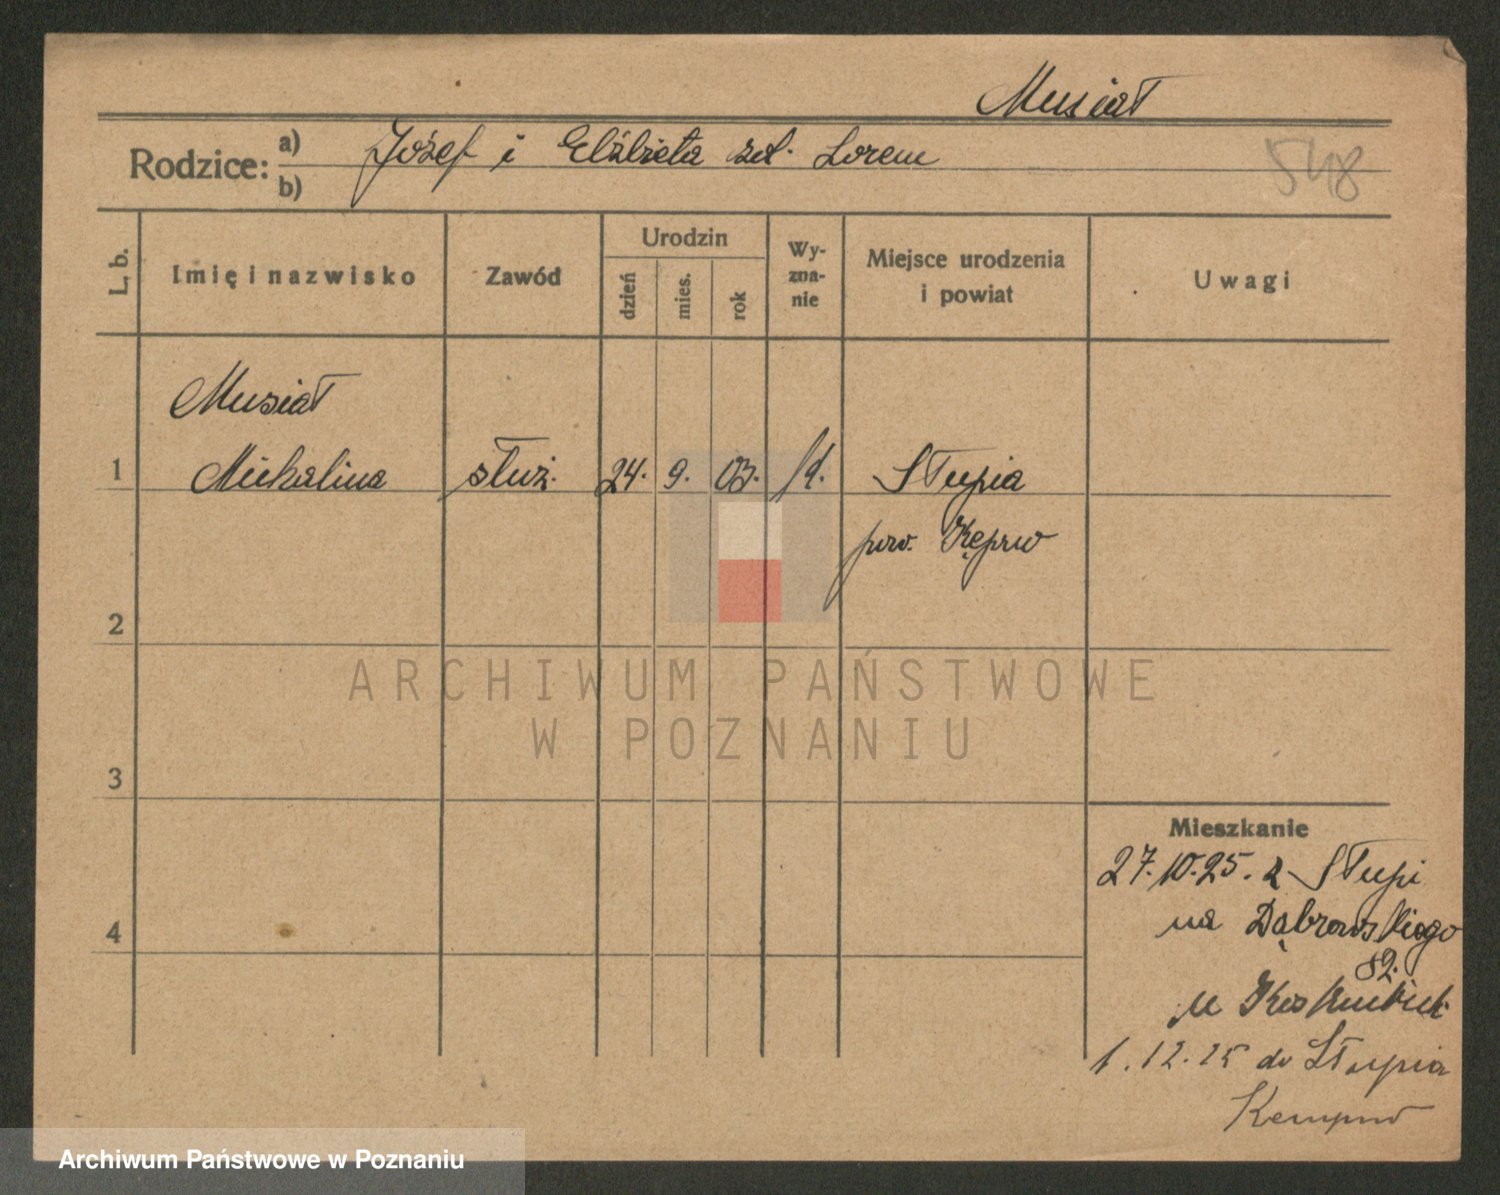 Musiał
Rodzice: a) Józef i Elżbieta zd. Lorenc
b)
548
L. b.
Imię i nazwisko
Zawód
Urodzin
dzień
mies.
rok
Wy-
zna-
nie
Miejsce urodzenia
i powiat
Uwagi
Musiał
1 Michalina służ. 24. 9. 03. Słupia
pow. Kępno
2
3
4
Mieszkanie
27.10.25. z Słupi
na Dąbrowskiego
82.
u
1.12.25 do Słupia
Kempno
ARCHIWUM PAŃSTWOWE
W POZNANIU
Archiwum Państwowe w Poznaniu